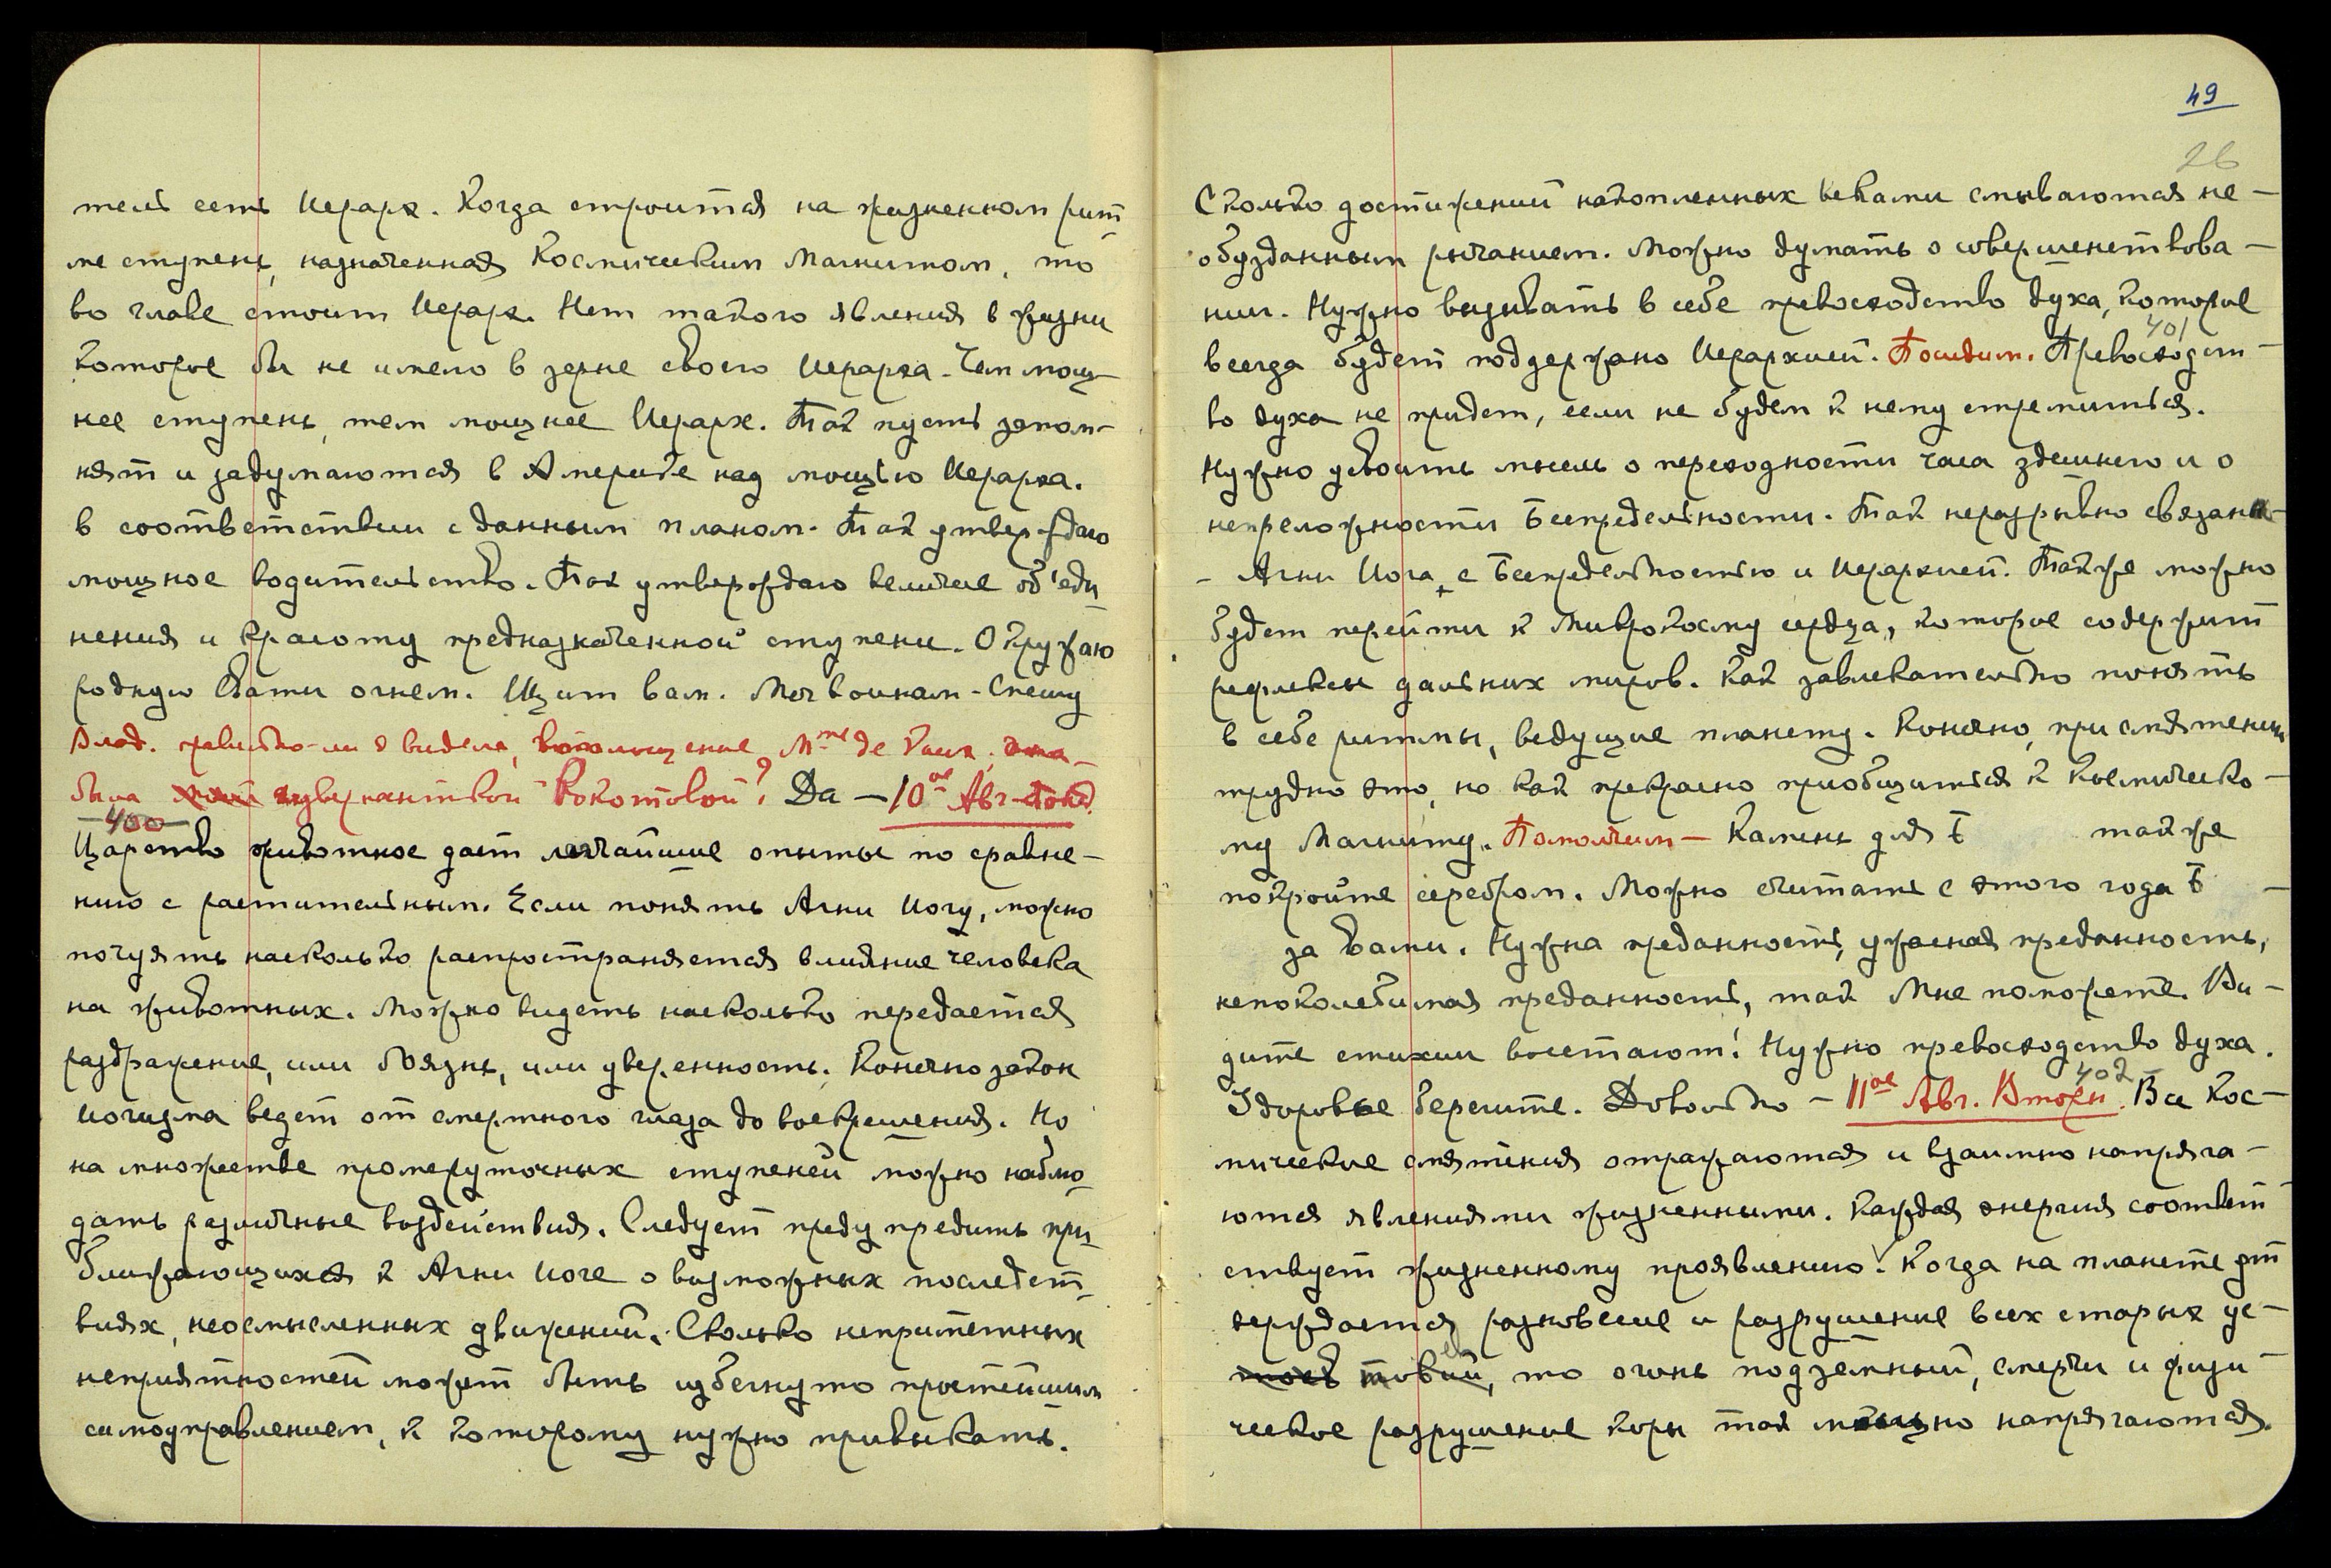 тель есть Иерарх. Когда строится на жизненном рит-
ме ступень, назначенная Космическим Магнитом, то
во главе стоит Иерарх. Нет такого явления в жизни
которое бы не имело в зерне своего Иерарха. Чем мощ-
нее ступень, тем мощнее Иерарх. Так пусть запом-
нят и задумаются в Америке над мощью Иерарха.
в соответствии с данным планом. Так утверждаю
мощное водительство. Так утверждаю величие об'еди-
нения и красоту предназначенной ступени. Окружаю
родную Свати огнем. Щит вам. Меч воинам - Спешу
Влад. правильно-ли я видела, воплощение, Mme de
была гувернанткой Рокотовой? Да — 10ое Авг.
400
Царство животное дает легчайшие опыты по сравне-
нию с растительным. Если понять Агни Йогу, можно
почуять насколько распространяется влияние человека
на животных. Можно видеть насколько передается
раздражение, или боязнь, или уверенность. Конечно закон
йогизма ведет от смертного глаза до воскрешения. Но
на множестве промежуточных ступеней можно наблю-
дать различные воздействия. Следует предупредить при-
ближающихся к Агни Йоге о возможных последст-
виях, неосмысленных движений. Сколько неприметных
неприятностей может быть избегнуто простейшим
самоуправлением, к которому нужно привыкать.
49
26
Сколько достижений накопленных веками смываются не-
обузданным рычанием. Можно думать о совершенствова-
нии. Нужно вызывать в себе превосходство духа, которое
401
всегда будет поддержано Иерархией. Посидим. Превосходст-
во духа не придет, если не будем к нему стремиться.
Нужно усвоить мысль о переходности часа здешнего и о
непреложности Беспредельности. Так неразрывно связана
- Агни Йога, с Беспредельностью и Иерархией. Также можно
будет перейти к Микрокосму сердца, которое содержит
рефлексы дальних миров. Как завлекательно понять
в себе ритмы, ведущие планету. Конечно, при смятении
трудно это, но как прекрасно приобщиться к Космическо-
му Магниту. Помолчим — Камень для Б также
покройте серебром. Можно считать с этого года Б —
за Вами. Нужна преданность, ужасная преданность,
непоколебимая преданность, так Мне поможете. Ви-
дите стихии восстают! Нужно превосходство духа.
402
Здоровье берегите. Довольно — 11ое Авг. Вторн. Все Кос-
мические смятения отражаются и взаимно напряга-
ются явлениями жизненными. Каждая энергия соответ-
ствует жизненному проявлению. Когда на планете ут-
верждается равновесие и разрушение всех старых ус-
товий, то огонь подземный, смерчи и физи-
ческое разрушение коры так мощно напрягаются.